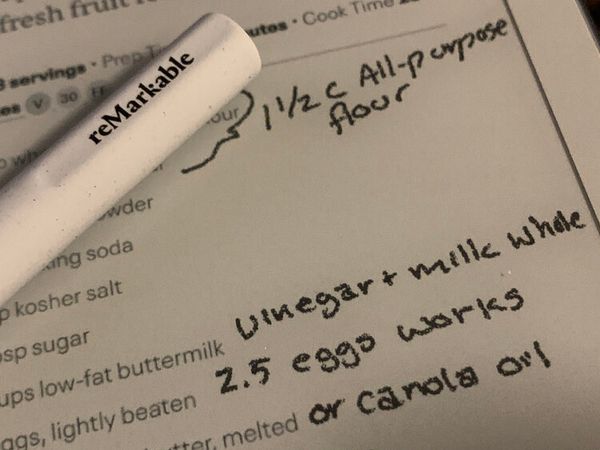 fresh fruit
servings • Prep Time
utes • Cook Time
V 30
our
1 1/2 c All-purpose
flour
reMarkable
wder
ing soda
kosher salt
sp sugar
ups low-fat buttermilk vinegar + milk whole
ggs, lightly beaten 2.5 eggs works
tter, melted or canola oil